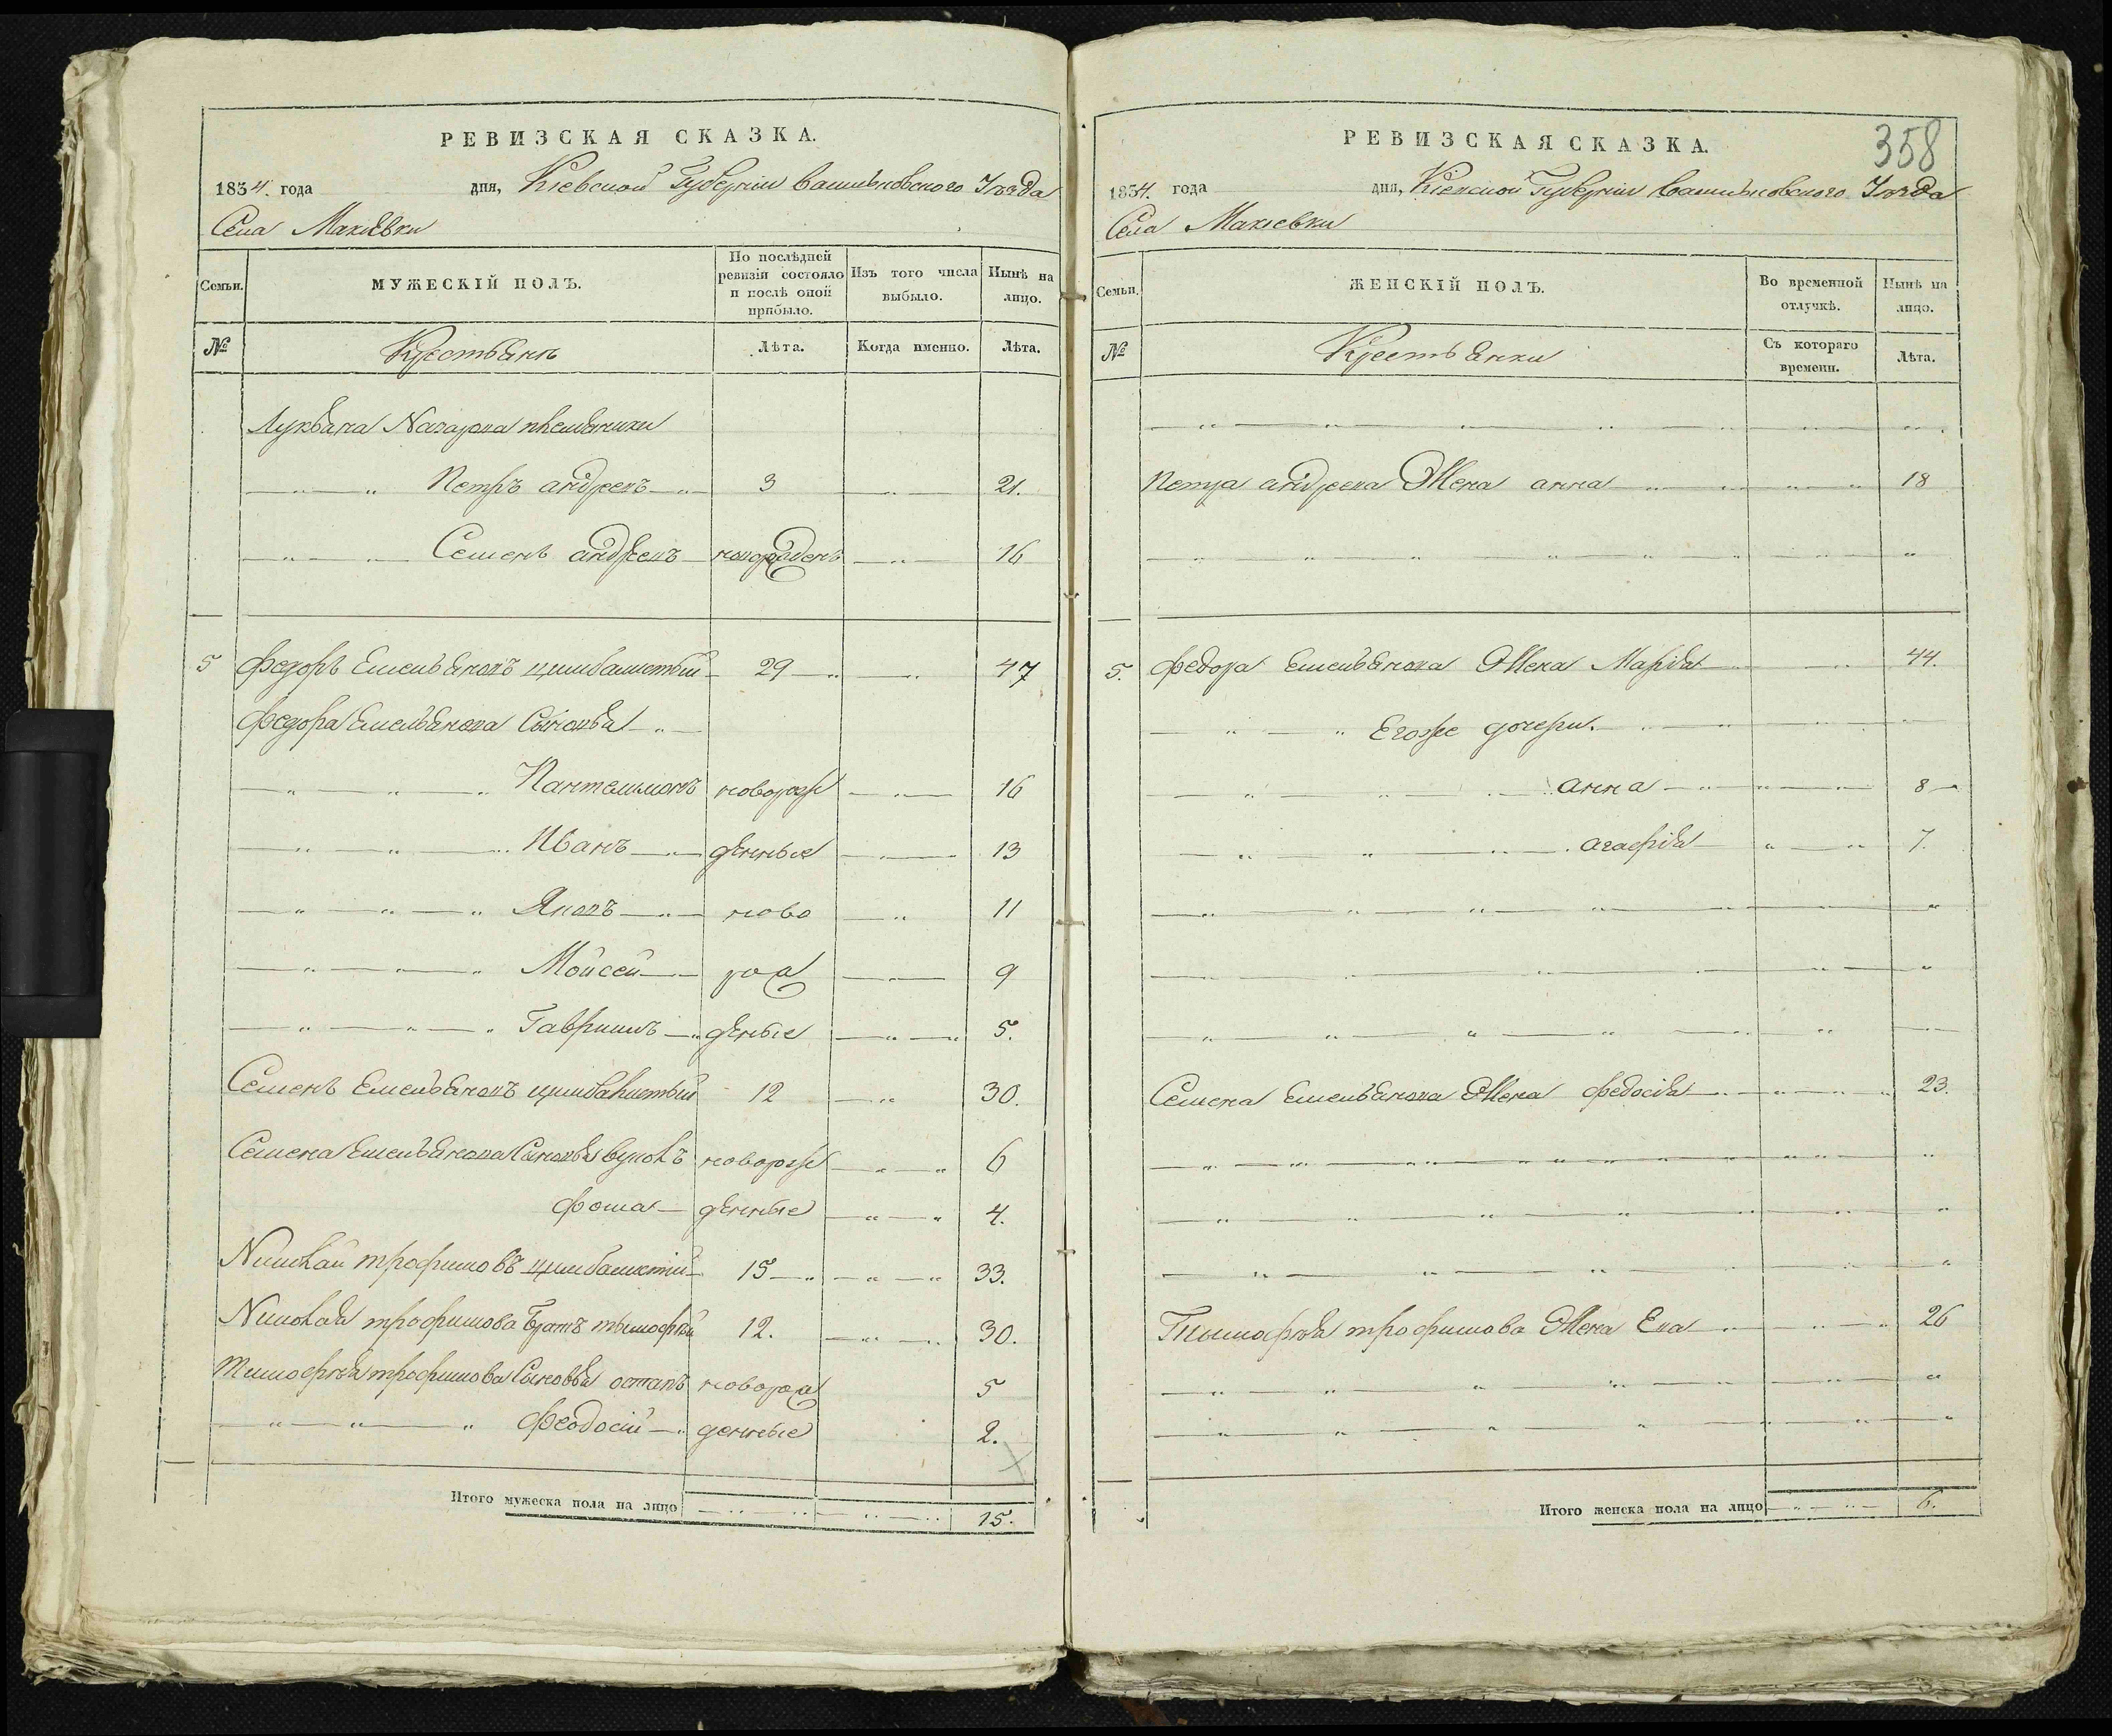 РЕВИЗСКАЯ СКАЗКА.
1834. года дня, Кіевской Губерніи Васильковскаго Уѣзда
Села Макіевки
Семьи.
МУЖЕСКІЙ ПОЛЪ.
По послѣдней ревизіи состояло и послѣ оной прибыло.
Изъ того числа выбыло.
Нынѣ на лицо.
№
Крестьяне
Лѣта.
Когда именно.
Лѣта.
Лукьяна Назарова племяники
Петръ андреевъ 3 21.
Семенъ андреевъ новорожденъ 16
5 федоръ Емельяновъ цимбалистый 29 47
федора Емельянова Сыновья
Пантелимонъ новорож 16
Иванъ денные 13
Яковъ ново 11
Мойсей рож 9
Гаврилъ деные 5.
Семенъ Емельяновъ цимбалистый 12 30.
Семена Емельянова Сыновья вуколъ новорож 6
фома денные 4.
Николай трофимовъ цимбалистій 15 33.
Николая трофимова братъ тымофей 12. 30.
Тимофѣя трофимова Сыновья остапъ новорож 5
феодосій денные 2.
Итого мужеска пола на лицо 15.
358
РЕВИЗСКАЯ СКАЗКА.
1834. года дня, Кіевской Губерніи Васильковскаго Уѣзда
Села Макіевки
Семьи.
ЖЕНСКІЙ ПОЛЪ.
Во временной отлучкѣ.
Нынѣ на лицо.
№
Крестьянки
Съ котораго времени.
Лѣта.
Петра андреева Жена анна 18
5. федора Емельянова Жена Марія 44.
Егоже дочери.
анна 8
агафія 7.
Семена Емельянова Жена федосія 23.
Тымофѣя трофимова Жена Ева 26
Итого женска пола на лицо 6.